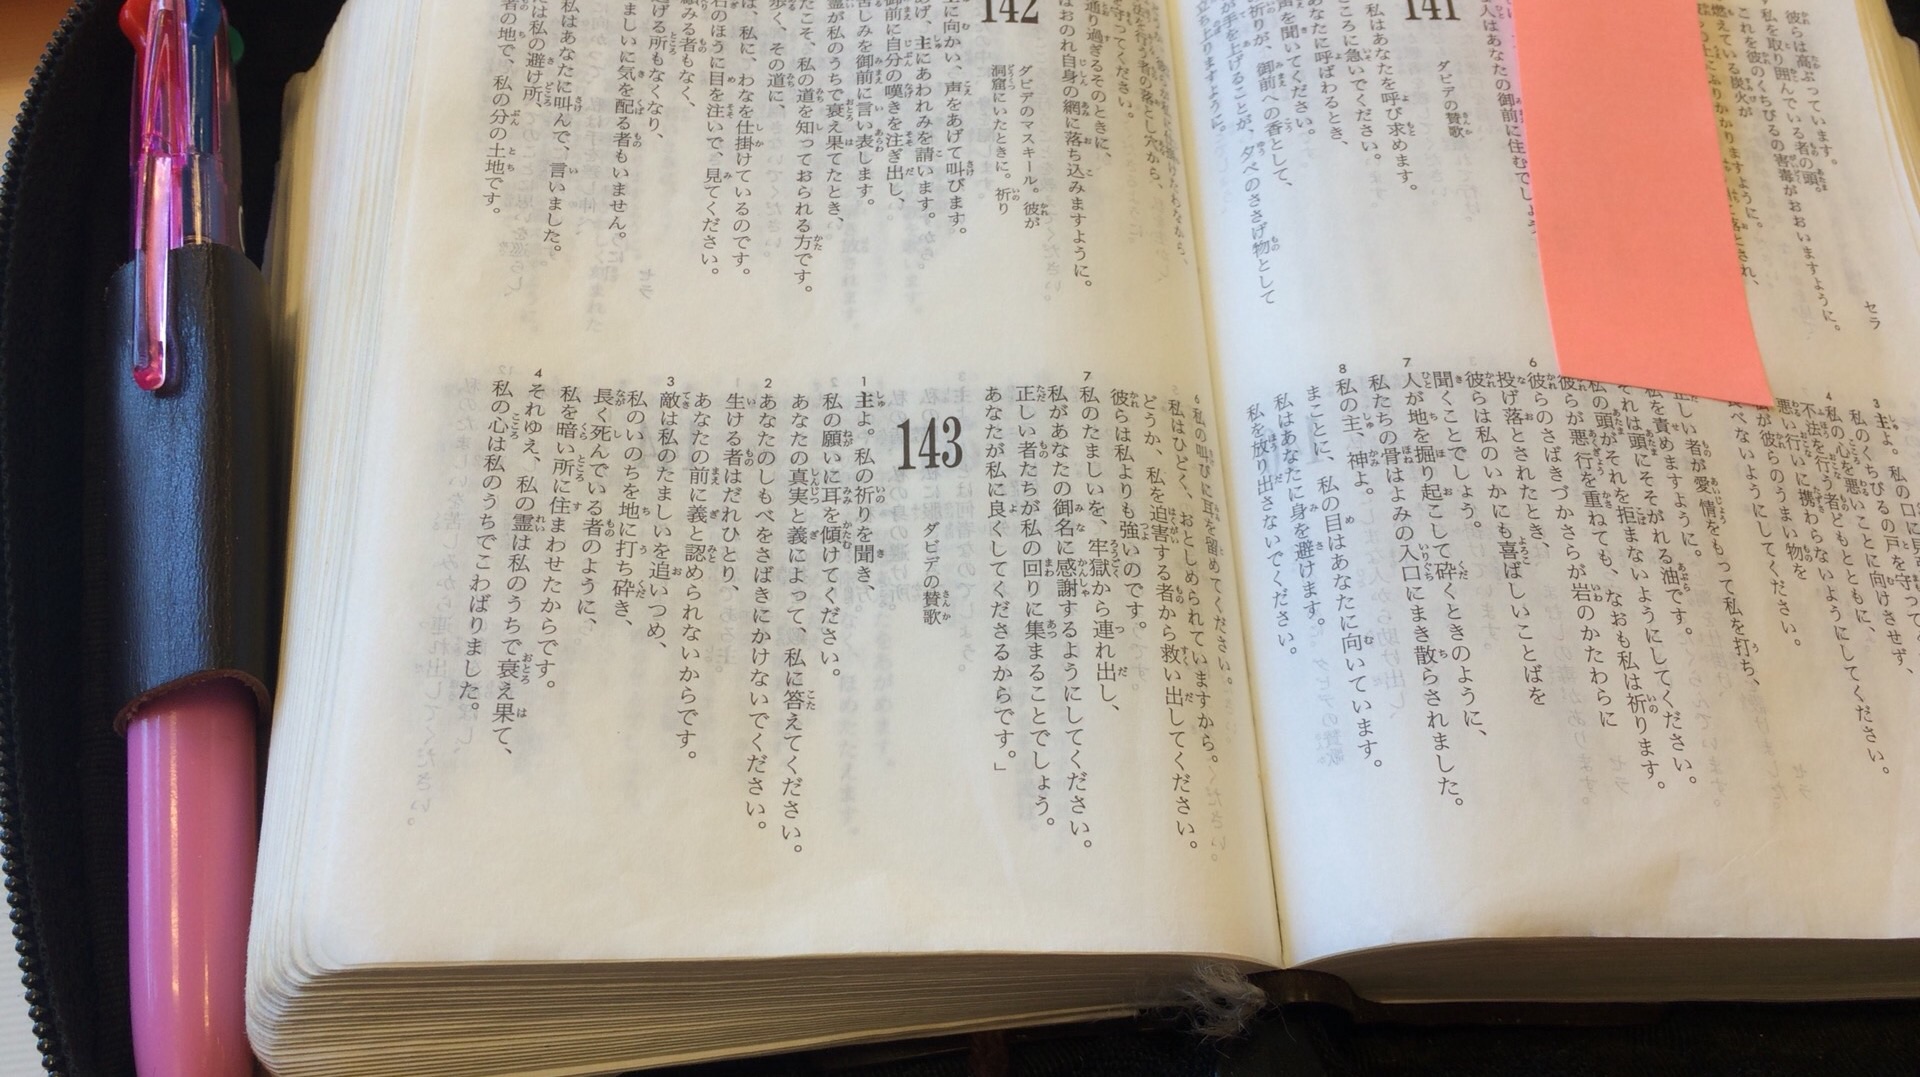 彼らは高ぶっています。
私を取り囲んでいる者の頭。
これを彼のくちびるの害毒がおおいますように。
燃えている炭火が
人はあなたの御前に住むでしょう。
セラ
141
ダビデの賛歌
私はあなたを呼び求めます。
ころに急いでください。
なたに呼ばわるとき、
声を聞いてください。
祈りが、御前への香として、
が手を上げることが、夕べのささげ物として
立ち上りますように。
3 主よ。私の口に見
私のくちびるの戸を守って
私の心を悪いことに向けさせず、
4 不法を行う者どもとともに、
悪い行いに携わらないようにしてください。
私が彼らのうまい物を
食べないようにしてください。
正しい者が愛情をもって私を打ち、
私を責めますように。
それは頭にそそがれる油です。
私の頭がそれを拒まないようにしてください。
彼らが悪行を重ねても、なおも私は祈ります。
6 彼らのさばきづかさらが岩のかたわらに
投げ落とされたとき、
彼らは私のいかにも喜ばしいことばを
聞くことでしょう。
7 人が地を掘り起こして砕くときのように、
私たちの骨はよみの入口にまき散らされました。
8 私の主、神よ。
まことに、私の目はあなたに向いています。
私はあなたに身を避けます。
私を放り出さないでください。
を守ってください。
通り過ぎるそのときに、
はおのれ自身の網に落ち込みますように。
142
ダビデのマスキール。彼が
洞窟にいたときに。祈り
主に向かい、声をあげて叫びます。
あげ、主にあわれみを請います。
御前に自分の嘆きを注ぎ出し、
苦しみを御前に言い表します。
霊が私のうちで衰え果てたとき、
たこそ、私の道を知っておられる方です。
歩く、その道に、
は、私に、わなを仕掛けているのです。
右のほうに目を注いで、見てください。
顧みる者もなく、
逃げる所もなくなり、
ましいに気を配る者もいません。
私はあなたに叫んで、言いました。
は私の避け所、
者の地で、私の分の土地です。
6 私の叫びに耳を留めてください。
私はひどく、おとしめられていますから。
どうか、私を迫害する者から救い出してください。
彼らは私よりも強いのです。
7 私のたましいを、牢獄から連れ出し、
私があなたの御名に感謝するようにしてください。
正しい者たちが私の回りに集まることでしょう。
あなたが私に良くしてくださるからです。」
143
ダビデの賛歌
1 主よ。私の祈りを聞き、
私の願いに耳を傾けてください。
あなたの真実と義によって、私に答えてください。
2 あなたのしもべをさばきにかけないでください。
生ける者はだれひとり、
あなたの前に義と認められないからです。
3 敵は私のたましいを追いつめ、
私のいのちを地に打ち砕き、
長く死んでいる者のように、
私を暗い所に住まわせたからです。
4 それゆえ、私の霊は私のうちで衰え果て、
私の心は私のうちでこわばりました。